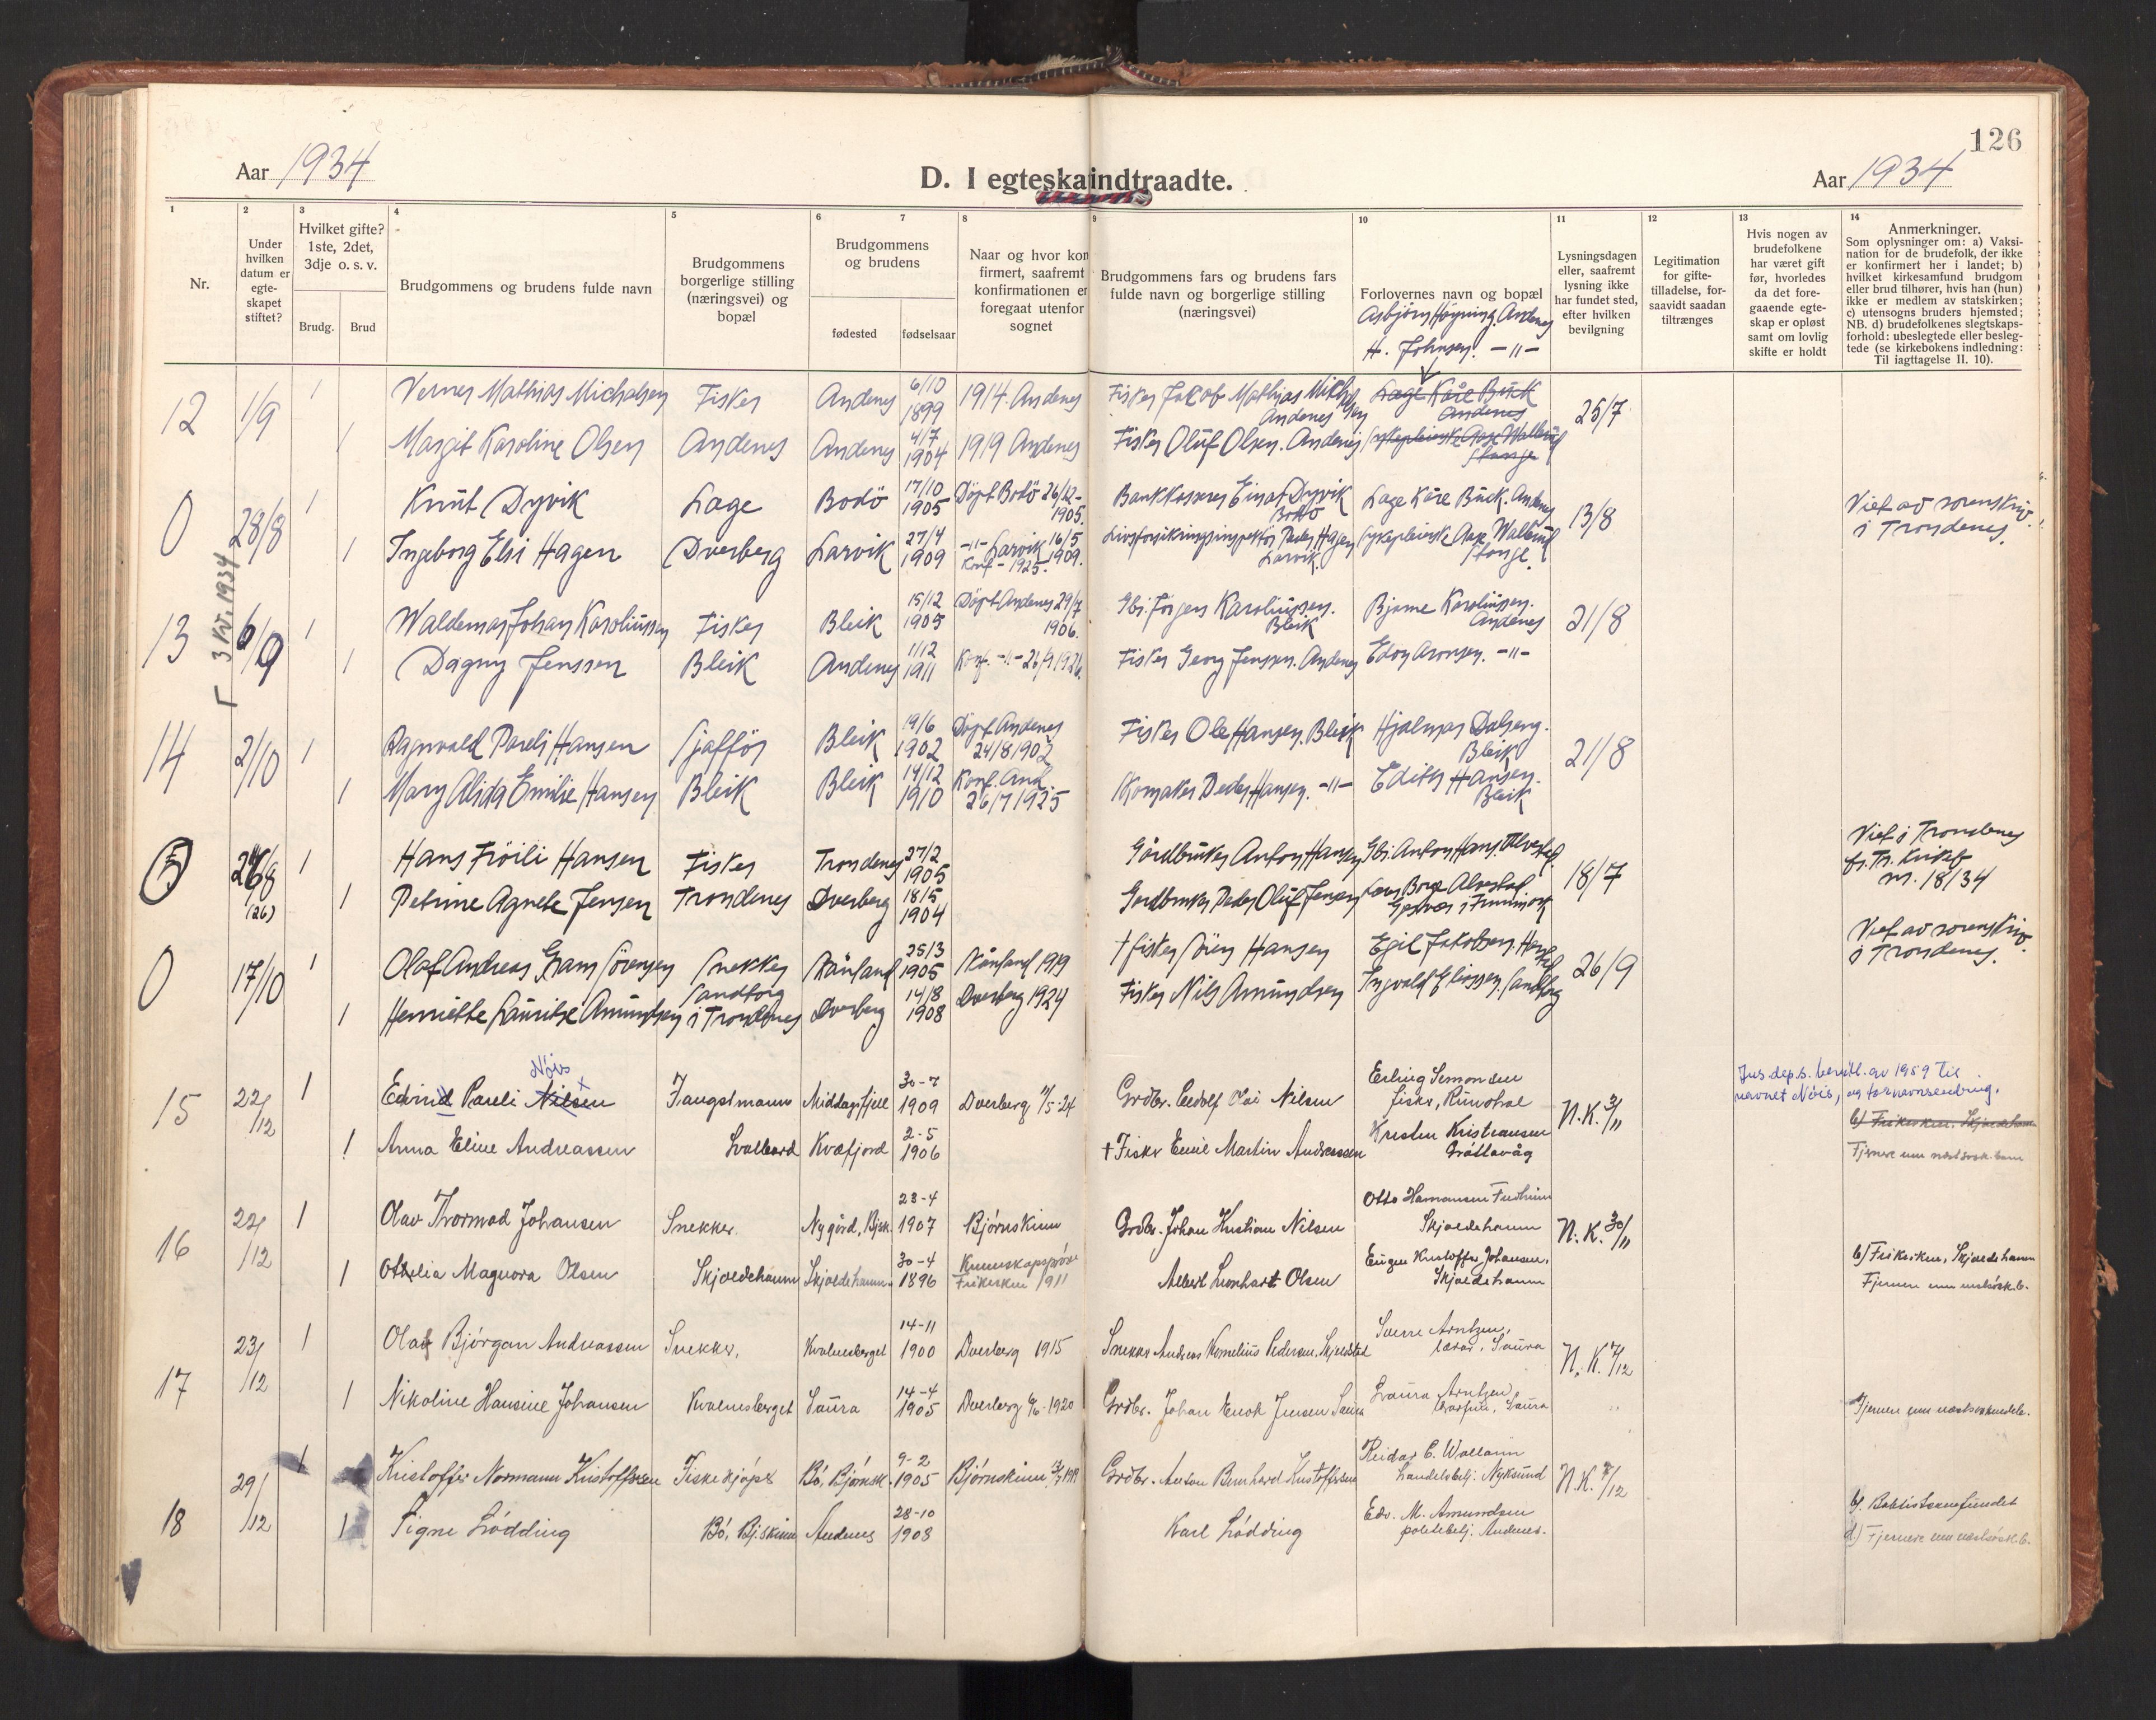 126
Aar 1934
D. I egteskaindtraadte.
Aar 1934
1 2 3 4 5 6 7 8 9 10 11 12 13 14
Nr.
Under hvilken datum er egte-skapet stiftet?
Hvilket gifte? 1ste, 2det, 3dje o. s. v.
Brudg.
Brud
Brudgommens og brudens fulde navn
Brudgommens borgerlige stilling (næringsvei) og bopæl
Brudgommens og brudens
fødested
fødselsaar
Naar og hvor kon
firmert, saafremt
konfirmationen er
foregaat utenfor
sognet
Brudgommens fars og brudens fars
fulde navn og borgerlige stilling
(næringsvei)
Forlovernes navn og bopæl
Lysningsdagen
eller, saafremt
lysning ikke
har fundet sted,
efter hvilken
bevilgning
Legitimation
for gifte-
tilladelse, for-
saavidt saadan
tiltrænges
Hvis nogen av
brudefolkene
har været gift
før, hvorledes
da det fore-
gaaende egte-
skap er opløst
samt om lovlig
skifte er holdt
Anmerkninger.
Som oplysninger om: a) Vaksi-
nation for de brudefolk, der ikke
er konfirmert her i landet; b)
hvilket kirkesamfund brudgom
eller brud tilhører, hvis han (hun)
ikke er medlem av statskirken;
c) utensogns bruders hjemsted;
NB. d) brudefolkenes slegtskaps-
forhold: ubeslegtede eller besleg-
tede (se kirkebokens indledning:
Til iagttagelse II. 10).
Asbjörn Höyning. Andenes
H. Johnsen. -"-
12 1/9 1 Verner Mathias Michalsen Fisker Andenes 6/10 1899 1914. Andenes Fisker Jakob Mathias Andenes Lage Kåre Buck Andenes 25/7
1 Margit Karoline Olsen Andenes Andenes 4/7 1904 1919 Andenes Fisker Oluf Olsen. Andenes Sykepleierske Aase Wallerud Stange
0 28/8 1 Knut Dyvik Læge Bodö 17/10 1905 Döpt Bodö 26/12-1905. Bankkasserer Einar Dyvik Bodö Læge Kåre Buck. Andenes 13/8 Viet av sorenskriv. i Trondenes.
1 Ingeborg Elsi Hagen Dverberg Larvik 27/4 1909 -"- Larvik 16/5 1909. Konf - 1925. Livsforsikringsinspektör Peder Hagen Larvik. Sykepleierske Aase Wallerud Stange.
3 kv. 1934
13 6/9 1 Waldemar Johan Karoliussen Fisker Bleik 15/12 1905 Döpt Andenes 29/7 1906. Gbr. Jörgen Karoliussen. Bleik Bjarne Karoliussen. Andenes 21/8
1 Dagny Jenssen Bleik Andenes 1/12 1911 Konf. -"- 26/9 1926. Fisker Georg Jenssen. Andenes Edon Aronsen. -"-
14 2/10 1 Ragnvald Pareli Hansen Sjafför Bleik 19/6 1902 Döpt Andenes 24/8 1902 Fisker Ole Hansen. Bleik Hjalmar Dalseng. Bleik 21/8
1 Mary Alida Emilie Hansen Bleik Bleik 14/12 1910 Konf. And. 26/7 1925 Skomaker Peder Hansen. -"- Edith Hansen. Bleik
26/8 (26) 1 Hans Fröili Hansen Fisker Trondenes 27/2 1905 Gårdbruker Anton Hansen Gbr. Anton Hans. Alvestad 18/7 Viet i Trondenes fr. Tr. kirkeb nr. 18/34
1 Petrine Agnete Jensen Trondenes Dverberg 18/5 1904 Gardbruker Peder Oluf Jensen Alvestad
0 17/10 1 Olaf Andreas Grans Sörensen Snekker Sandtorg i Trondenes Kånland 25/3 1905 Kånland 1919 † fisker Sören Hansen Egil Jakobsen. 26/9 Viet av sorenskriv. i Trondenes.
1 Henriette Lauritse Amundsen Dverberg 14/8 1908 Dverberg 1924 Fisker Nils Amundsen Ingvald Eliassen. Sandtorg
Nöis
15 22/12 1 Edvind Pauli Nilsen x Fangstmann Middagsfjell 30-7 1909 Dverberg 11/5-24 Grdbr. Ludolf Olai Nilsen Erling Simonsen fisker, N.K. 3/11
Jus.dep.s. bevill. av 1959 til
navnet Nöis, og fornavnsendring.
1 Anna Eline Andreassen Svalbard Kvæfjord 2-5 1906 † Fisker Emil Martin Andreassen Kristen Kristiansen Gråttavåg b) Frikirken. Skjoldehamn
16 22/12 1 Olav Thormod Johansen Snekker. Nygård, Bjsk. 23-4 1907 Björnskinn Grdbr. Johan Kristian Nilsen Otto Hamansen Skjoldehamn N.K. 30/11
1 Othelia Magnora Olsen Skjoldehamn Skjoldehamn 30-4 1896 Kunnskapspröve Frikirken 1911 Albert Leonhart Olsen Eugen Kristoffer Johansen, Skjoldehamn b) Frikirken, Skjoldehamn Fjernere enn nestsösk.b.
17 23/12 1 Olaf Björgan Andreassen Snekker, Kvalnesberget 14-11 1900 Dverberg 1915 Snekker Andreas Kornelius Pedersen, Sverre Arntzen, lærar, Saura N.K. 7/12
1 Nikoline Hansine Johansen Kvalnesberget Saura 14-4 1905 Dverberg 6/6-1920 Grdbr. Johan Enok Jensen Saura Laura Arntzen, Saura Fjernere enn nestsöskendeb.
18 29/12 1 Kristoffer Normann Kristoffersen Fiskekjöper Bö, Björnsk. 9-2 1905 Björnskinn Grdbr. Anton Bernhard Kristoffersen Reidar C. Wallann handelsbetj. Nyksund N.K. 7/12
1 Signe Lödding Bö, Bj.skinn Andenes 28-10 1908 Karl Lödding Edv. M. Amundsen politibetj. Andenes. b). Baptistsamfundet d) Fjernere enn nestsösk.b.